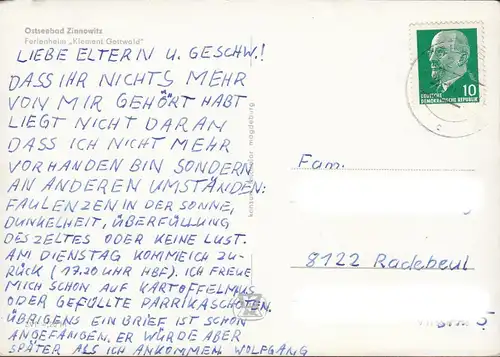 Ostseebad Zinnowitz
Ferienheim „Klement Gottwald"
LIEBE ELTERN U. GESCHW.!
DASS IHR NICHTS MEHR
VON MIR GEHÖRT HABT
LIEGT NICHT DARAN
DASS ICH NICHT MEHR
VORHANDEN BIN SONDERN
AN ANDEREN UMSTÄNDEN:
FAULENZEN IN DER SONNE,
DUNKELHEIT, ÜBERFÜLLUNG
DES ZELTES ODER KEINE LUST.
AM DIENSTAG KOMME ICH ZU-
RÜCK (17.20 UHR HBF). ICH FREUE
MICH SCHON AUF KARTOFFELMUS
ODER GEFÜLLTE PARRIKASCHOTEN.
ÜBRIGENS EIN BRIEF IST SCHON
ANGEFANGEN. ER WÜRDE ABER
SPÄTER ALS ICH ANKOMMEN WOLFGANG
magdeburg
10
DEUTSCHE
DEMOKRATISCHE REPUBLIK
Fam.
8122 Radebeul
5